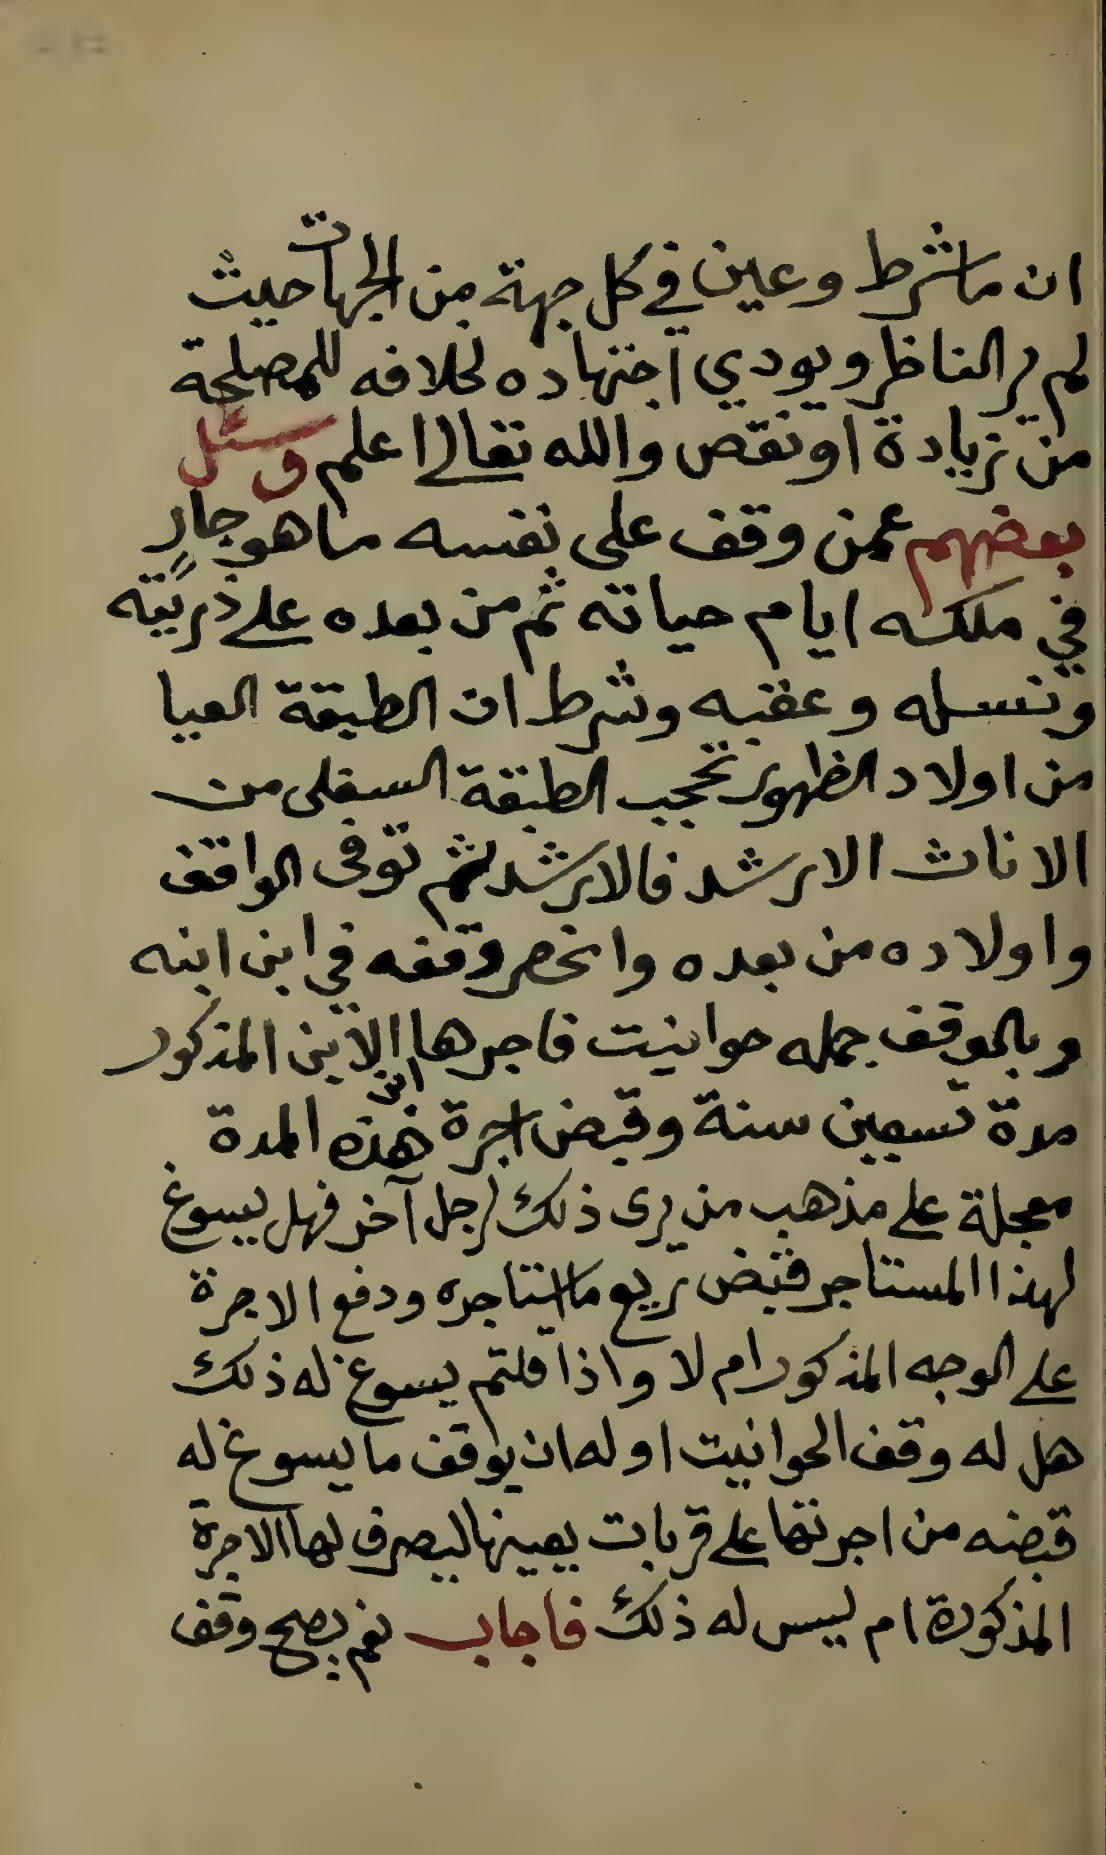 ان ما شرط وعين في كل جهة من الجهات حيث
لم ير الناظر ويودي اجتهاده لخلافه للمصلحة
من زيادة او نقص والله تعالى اعلم وسئل
بعضهم عمن وقف على نفسه ما هو جارٍ
في ملكه ايام حياته ثم من بعده على ذريته
ونسله وعقبه وشرط ان الطبقة العيا
من اولاد الظهور تحجب الطبقة السفلى من
الاناث الارشد فالارشد ثم توفى الواقف
واولاده من بعده وانحصر وقفه في ابن ابنه
وبالوقف جمله حوانيت فاجرها ابن الابن المذكور
مدة تسعين سنة وقبض اجرة هذه المدة
معجلة على مذهب من يرى ذلك لرجل آخر فهل يسوغ
لهذا المستاجر قبض ريع ما استاجره ودفع الاجرة
على الوجه المذكور ام لا واذا قلتم يسوغ له ذلك
هل له وقف الحوانيت او له ان يوقف ما يسوغ له
قبضه من اجرتها على قربات يعينها ليصرف لها الاجرة
المذكورة ام ليس له ذلك فاجاب نعم يصح وقف